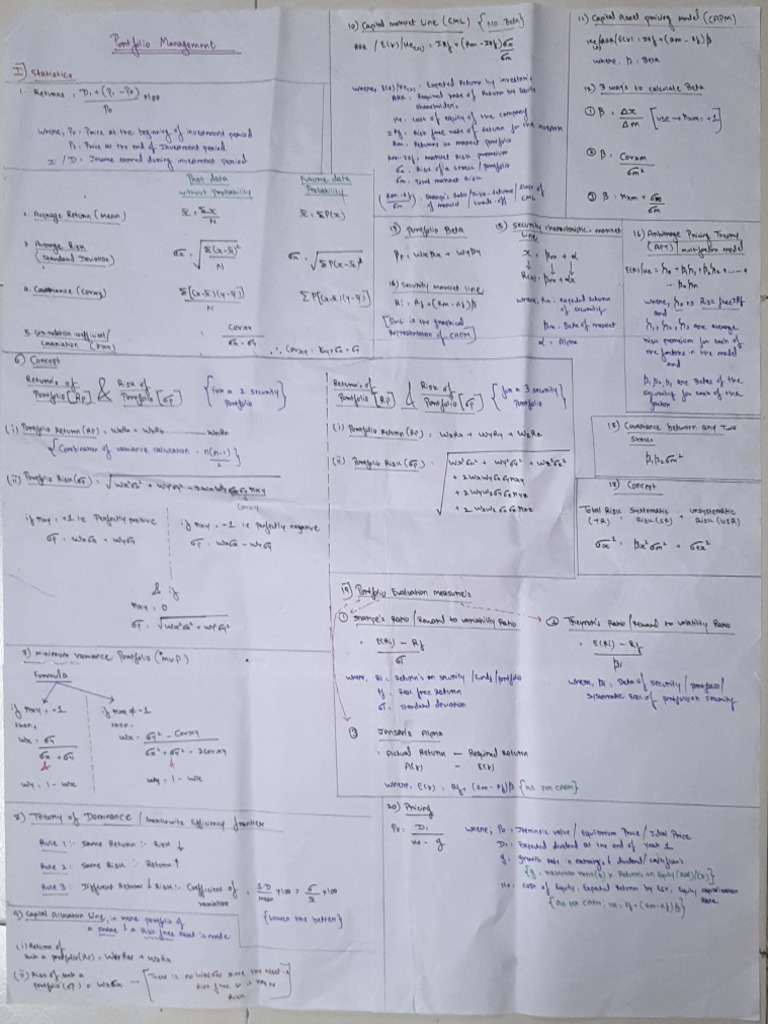 Portfolio Management
I) Statistics
1. Returns = D₁ + (P₁ - P₀) × 100
P₀
where, P₀ = Price at the beginning of investment period
P₁ = Price at the end of Investment period
I / D = Income earned during investment period
Past data without Probability
Future data Probability
2. Average Return (Mean)
x̄ = Σx / N
x̄ = ΣP(x)
3. Average Risk (Standard Deviation)
σx = √ Σ(x-x̄)² / N
σx = √ ΣP(x-x̄)²
4. Covariance (Covxy)
Σ[(x-x̄)(y-ȳ)] / N
ΣP[(x-x̄)(y-ȳ)]
Covxy
σx · σy
6) Concept
Return's of Portfolio [Rp] & Risk of Portfolio [σp] {for a 2 security Portfolio}
(i) Portfolio Return (Rp) = WaRa + WbRb ........ WnRn
{Combination of variance calculation = n(n-1) / 2}
(ii) Portfolio Risk (σp) =
Covxy
if rxy = +1 i.e Perfectly positive
σp = Wxσx + Wyσy
if rxy = -1 i.e Perfectly negative
σp = Wxσx - Wyσy
& if
rxy = 0
σp = √ Wx²σx² + Wy²σy²
Return's of Portfolio [Rp] & Risk of Portfolio [σp] {for a 3 security Portfolio}
(i) Portfolio Return (Rp) = WxRx + WyRy + WzRz
(ii) Portfolio Risk (σp) = √ Wx²σx² + Wy²σy² + Wz²σz²
+ 2WxWyσxσyrxy
+ 2WyWzσyσzryz
+ 2WxWzσxσzrxz
7) Minimum variance Portfolio (MVP)
Formula
if rxy = -1
then,
Wx = σy
σx + σy
&
Wy = 1 - Wx
if rxy ≠ -1
then,
Wx = σy² - Covxy
σx² + σy² - 2Covxy
&
Wy = 1 - Wx
8) Theory of Dominance / Markowitz Efficiency frontier
Rule 1 :- Same Return :- Risk ↓
Rule 2 :- Same Risk :- Return ↑
Rule 3 :- Different Return & Risk :- Coefficient of variation = S.D / Mean × 100 = σ / x̄ × 100
{lower the better}
9) Capital Allocation Line, in where portfolio of
a share & a Risk free asset is made
(i) Return of such a portfolio (Rp) =
(ii) Risk of such a portfolio (σp) = Wxσx
10) Capital market Line (CML) {No Beta}
where,
Expected Return by investors
RRR = Required rate of Return by equity shareholders
Ke = Cost of equity of the company
Rm = Returns on market portfolio
Market Risk Premium
σm = Total market Risk
11) Capital Asset pricing model (CAPM)
where, β = Beta
12) 3 ways to calculate Beta
① β = Δx / Δm
② β = Covxm / σm²
③ β = rxm × σx / σm
13) Portfolio Beta
Pβ = Wxβx + Wyβy
14) Security market line
Ri = Rf + (Rm - Rf)β
[SML is the graphical Representation of CAPM]
15) Security characteristic market line
where, Rx = expected return of security
βm = Beta of market
α = Alpha
16) Arbitrage Pricing Theory (APT) / multifactor model
where, λ₀ is Risk free Rf
and
λ₁, λ₂, λ₃ are average
risk premium for each of
the factors in the model
and
β₁, β₂, β₃ are Betas of the
security for each of the
factor
17) Covariance between any Two stocks
β₁β₂σm²
18) Concept
Total Risk (TR) = Systematic Risk (SR) + Unsystematic Risk (USR)
σx² = βx²σm² + σεx²
19) Portfolio Evaluation Measure's
① Sharpe's Ratio / Reward to variability Ratio
= E(Ri) - Rf
σ
where, Ri = Return's on security / funds / portfolio
Rf = Risk free Return
σ = Standard deviation
② Treynor's Ratio / Reward to volatility Ratio
= E(Ri) - Rf
βi
where, βi = Beta of security / portfolio /
Systematic Risk of portfolio or security
③ Jensen's Alpha
= Actual Return - Required Return
A(r) - E(r)
where, E(r) = Rf + (Rm - Rf)β {as per CAPM}
20) Pricing
P₀ = D₁
Ke - g
where, P₀ = Intrinsic value / Equilibrium Price / Ideal Price
D₁ = Expected dividend at the end of year 1
g = growth rate in earnings & dividend / cashflows
Ke = Cost of Equity, Expected Return by ESH, Equity capitalisation Rate
{As per CAPM, Ke = Rf + (Rm - Rf)β}